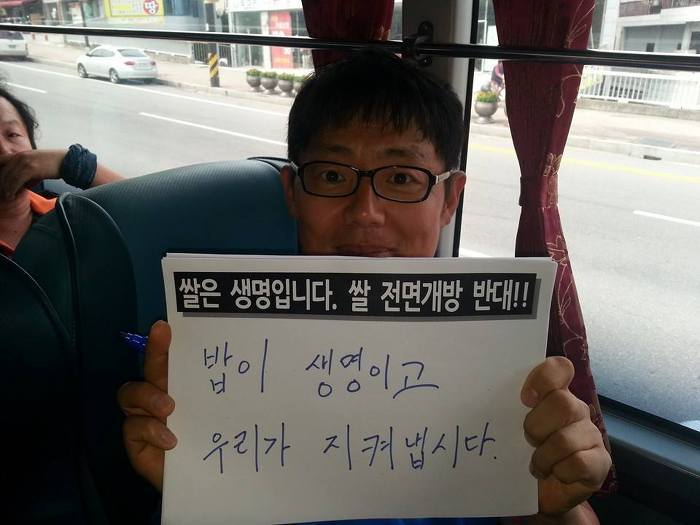 쌀은 생명입니다. 쌀 전면개방 반대!!
밥이 생명이고
우리가 지켜냅시다.